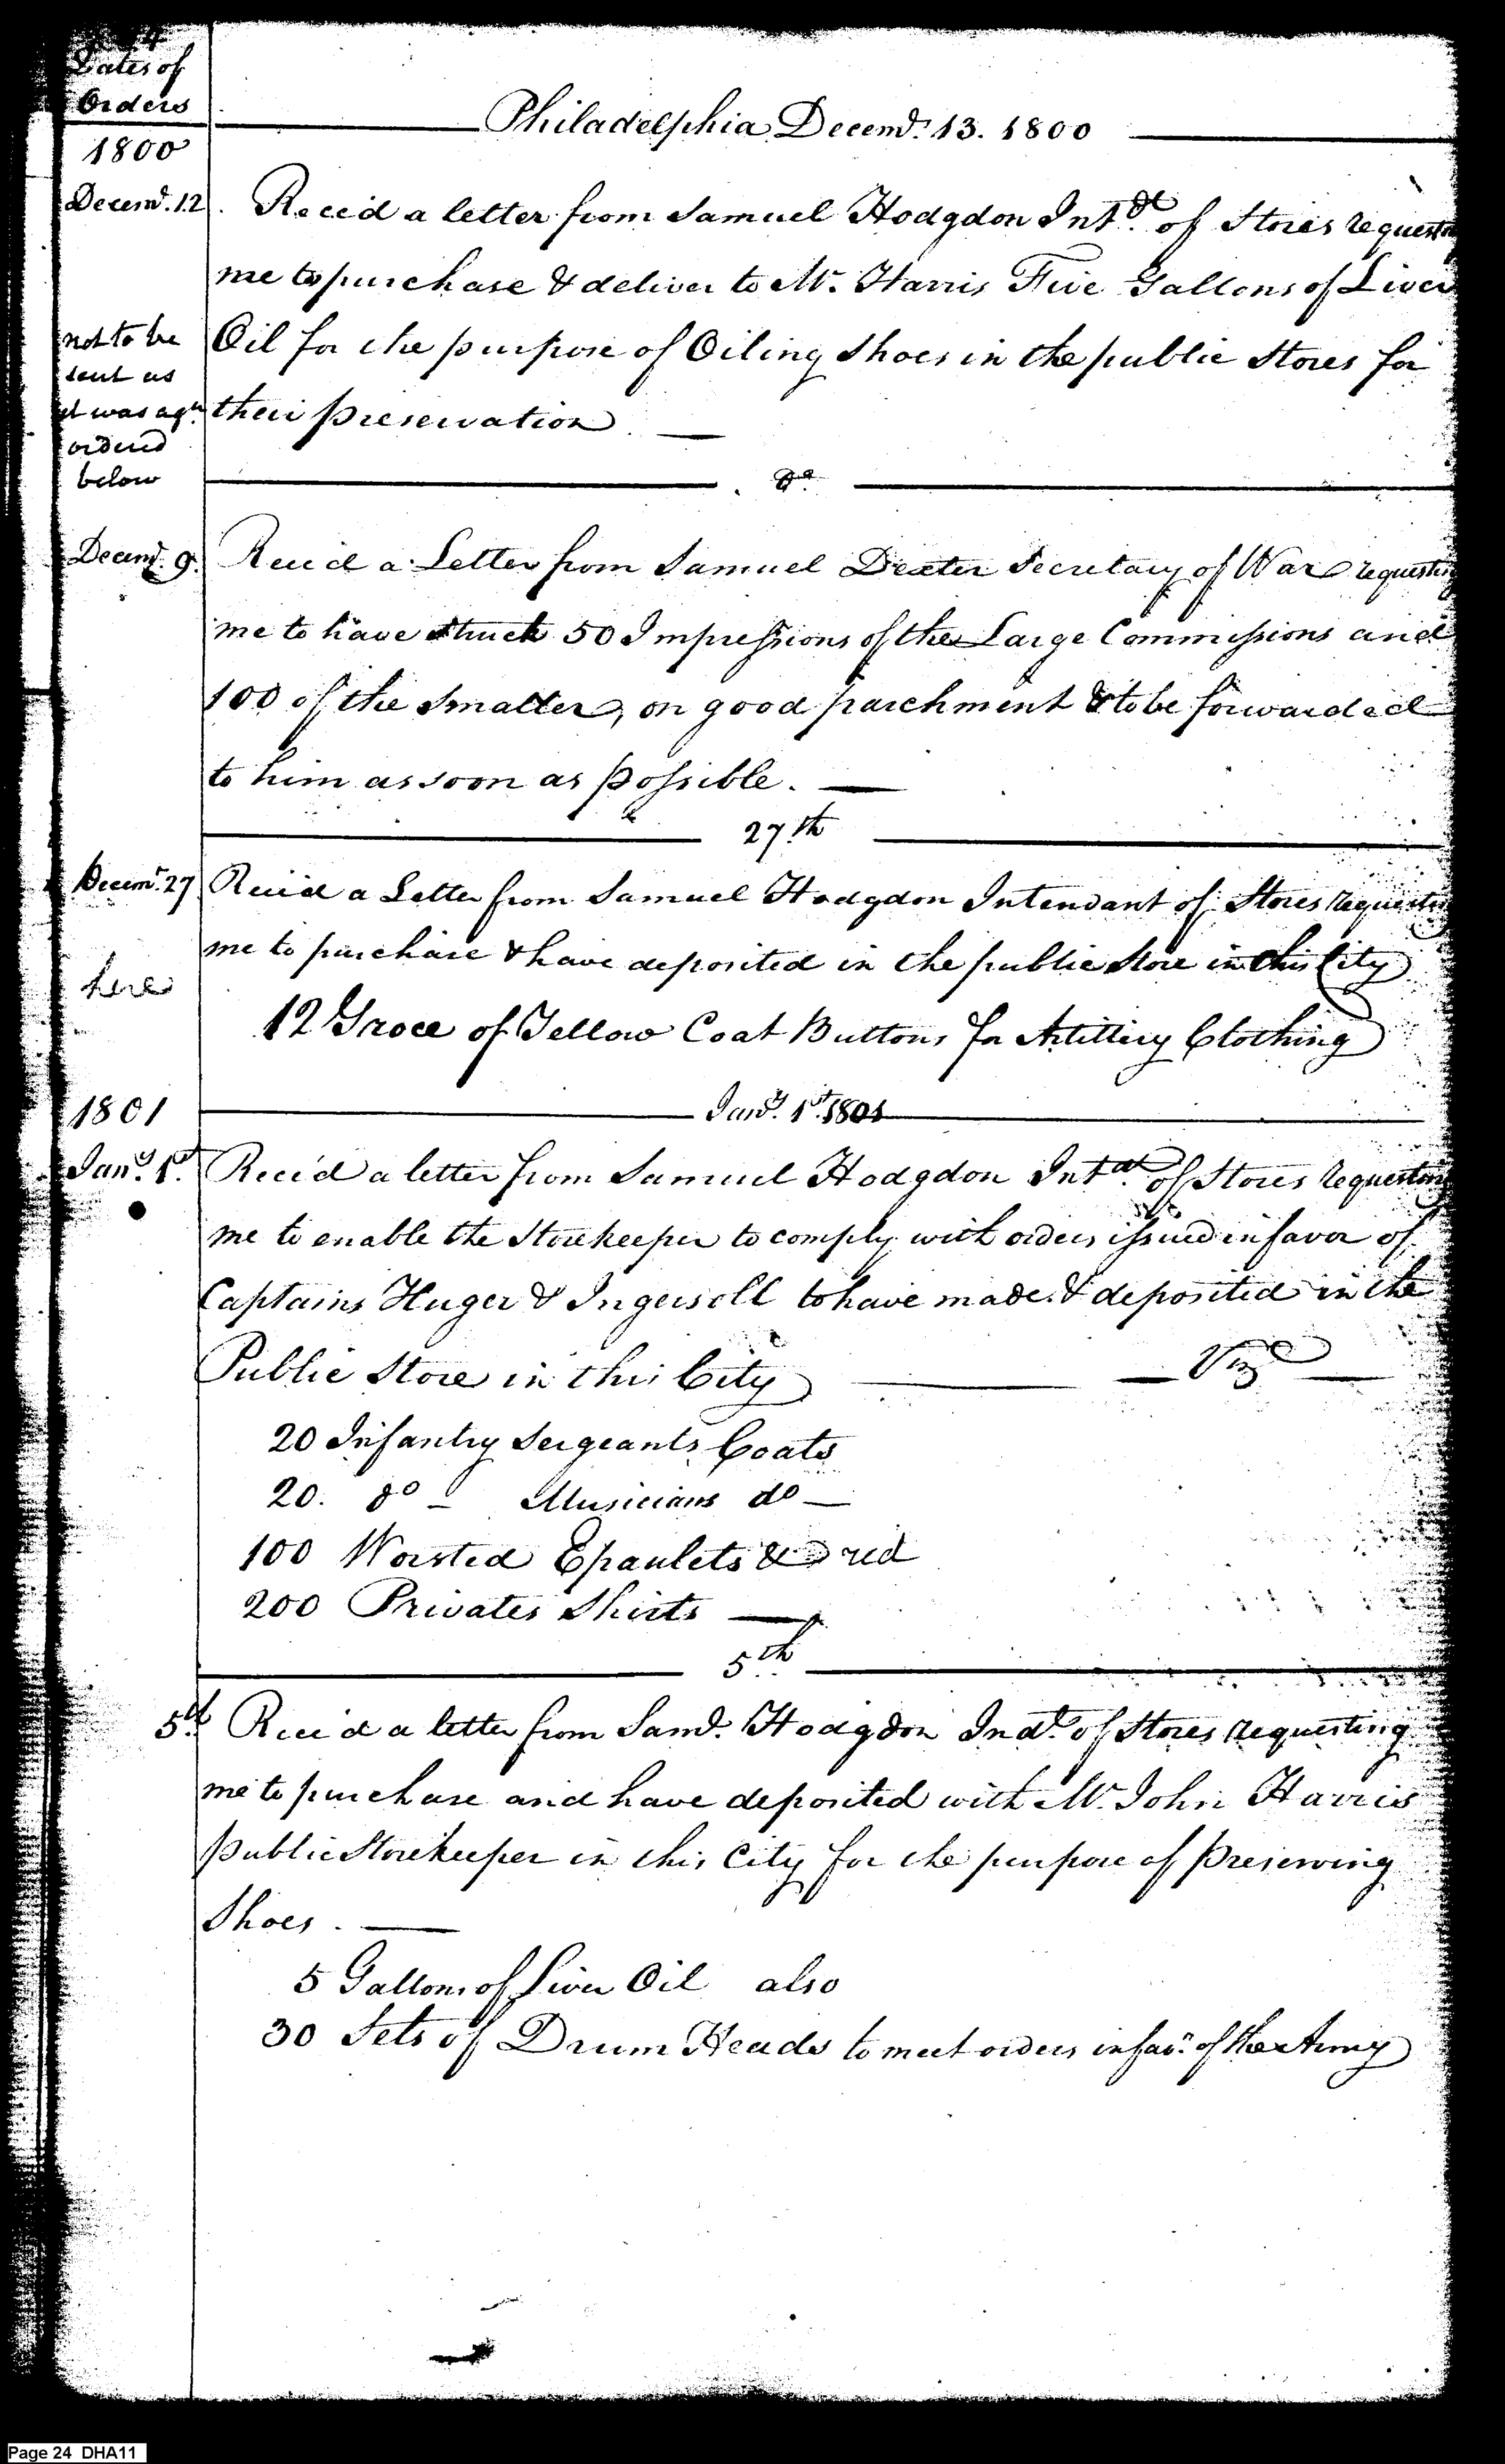 Dates of
Orders
Philadelphia Decemr. 13. 1800
1800
Decemr. 12. Recei'd a letter from Samuel Hodgdon Intdt. of Stores requesting
me to purchase & deliver to Mr. Harris Five Gallons of Liver
not to be Oil for the purpose of Oiling Shoes in the public Stores for
sent as
it was agn. their preservation
ordered
below
Do.
Decemr. 9. Receid a Letter from Samuel Dexter Secretary of War requesting
me to have struck 50 Impressions of the Large Commissions and
100 of the smaller, on good parchment & to be forwarded
to him as soon as possible.
27.th
Decemr. 27 Receid a Letter from Samuel Hodgdon Intendant of Stores requesting
me to purchase & have deposited in the public Store in this City
here
12 Groce of Yellow Coat Buttons for Artillery Clothing
1801 Jany. 1st. 1801
Jany. 1st. Recei'd a letter from Samuel Hodgdon Intdt. of Stores requesting
me to enable the Storekeeper to comply with orders issued in favor of
Captains Huger & Ingersoll to have made & deposited in the
Public Store in this City Vizt
20 Infantry Sergeants Coats
20. do Musicians do
100 Worsted Epaulets red
200 Privates Shirts
5th
5th. Recei'd a letter from Saml. Hodgdon Indt. of Stores requesting
me to purchase and have deposited with Mr. John Harris
public Storekeeper in this City for the purpose of preserving
Shoes.
5 Gallons of Liver Oil also
30 Sets of Drum Heads to meet orders in favr. of the Army
Page 24 DHA11